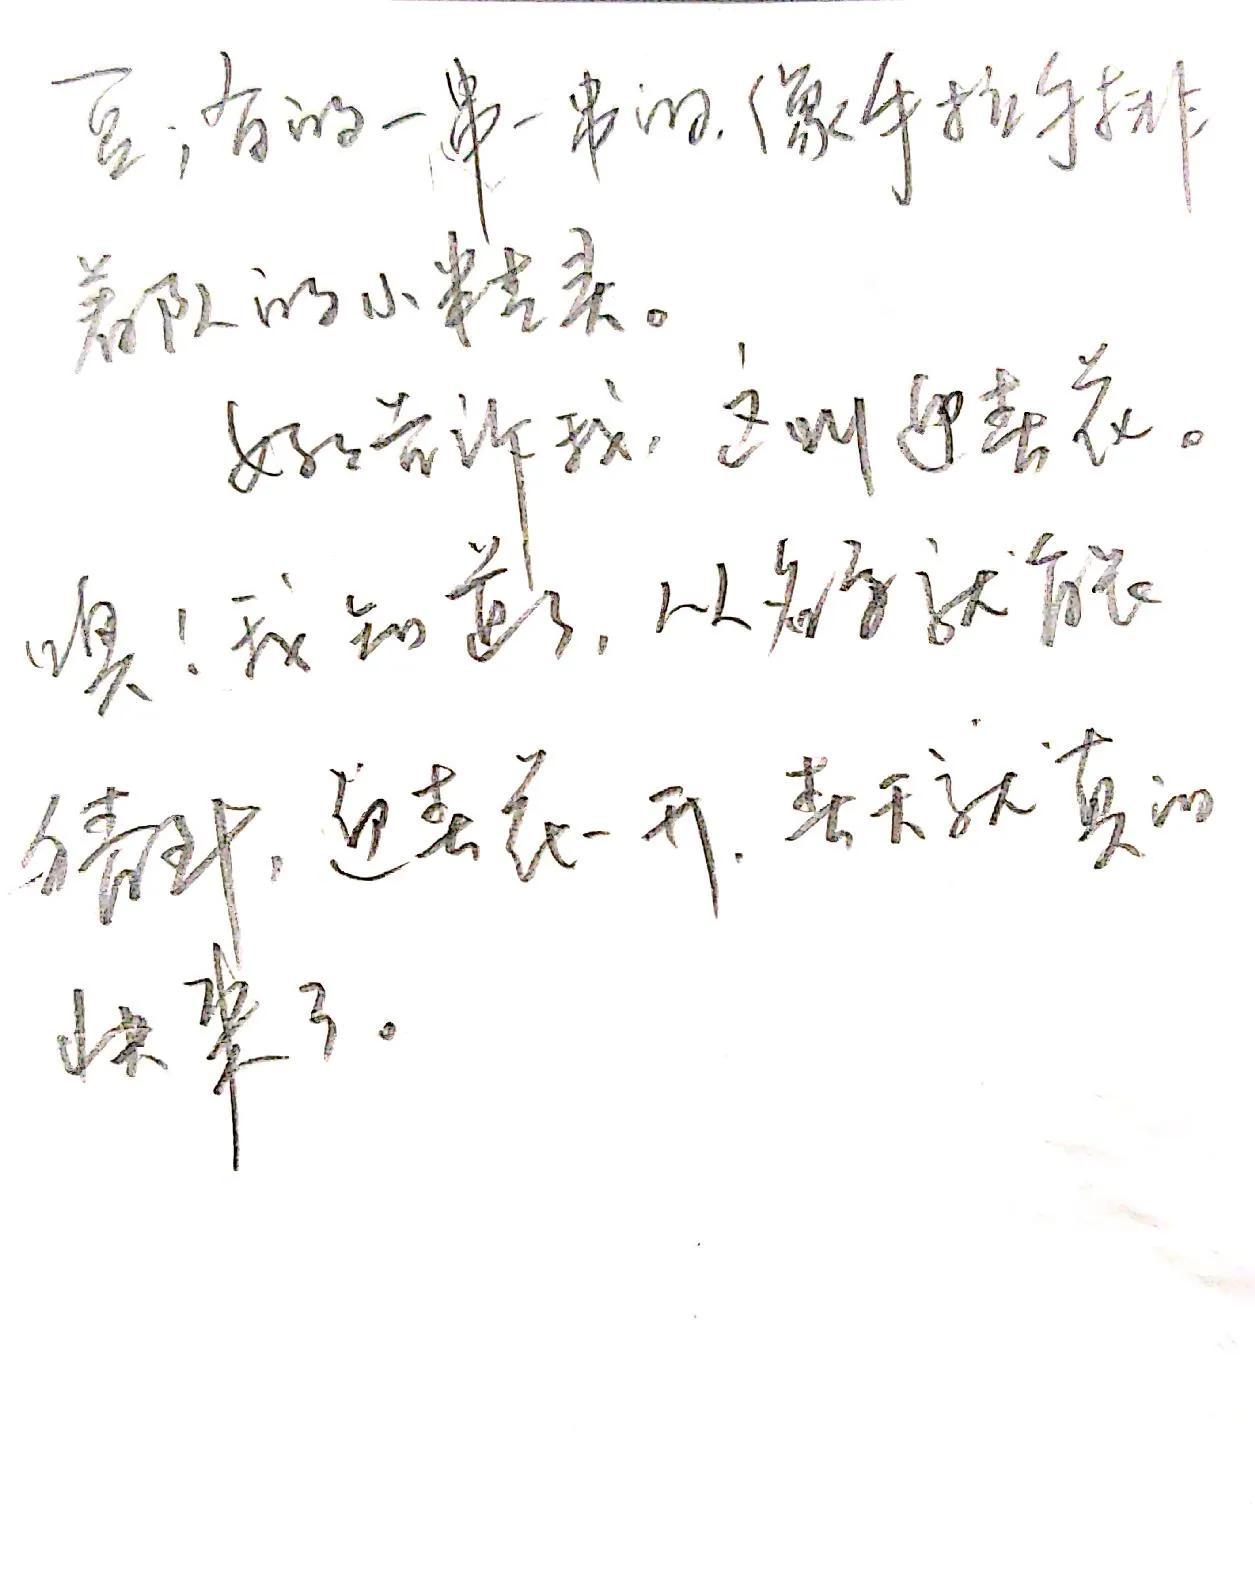 豆，有的一串一串的，像手拉手排
着队的小精灵。
妈妈告诉我，这叫迎春花。
噢！我知道了，以后就能
猜到，迎春花一开，春天就真的
快来了。